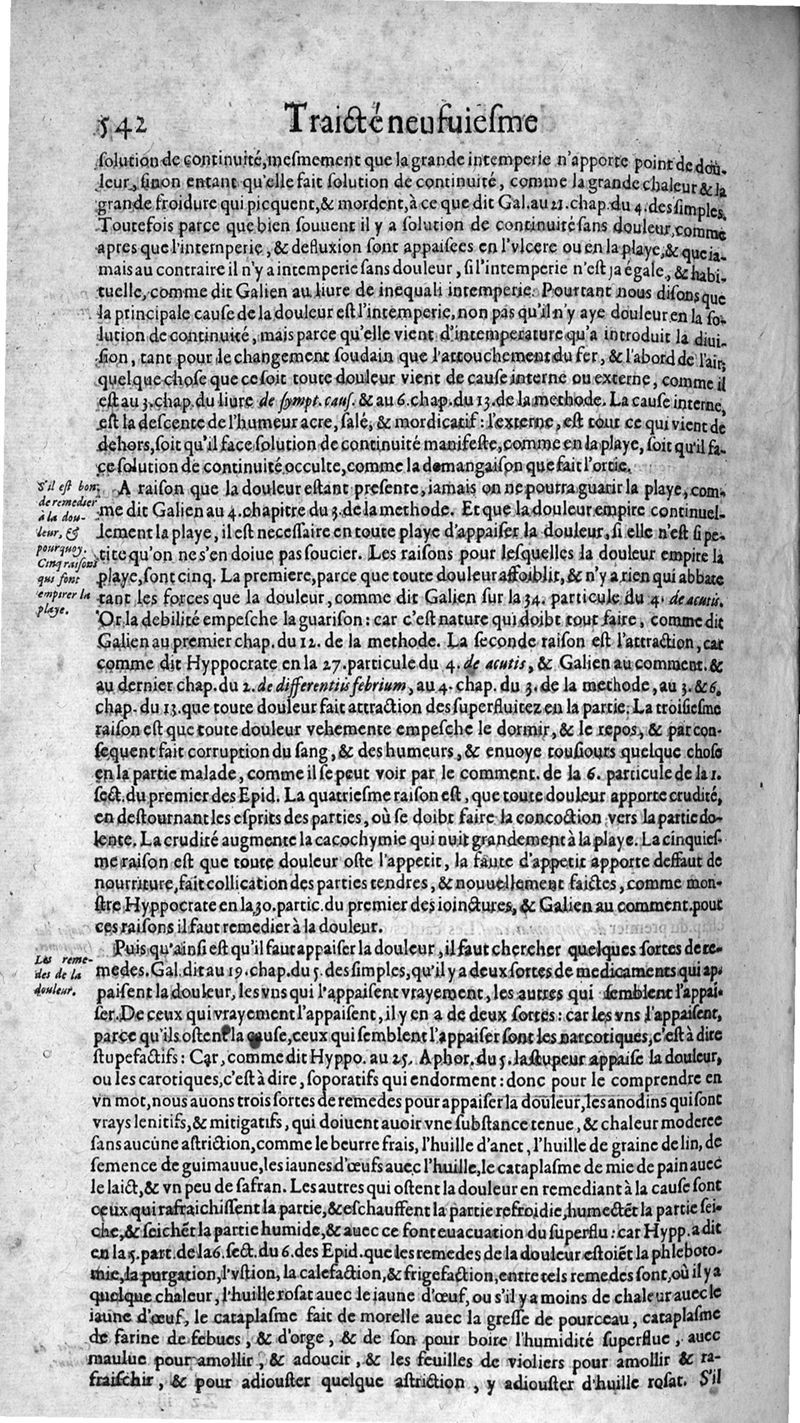 542 Traicté neufuiesme
solution de continuité, mesmement que la grande intemperie n'apporte point de dou-
leur, sinon entant qu'elle fait solution de continuité, comme la grande chaleur & la
grande froidure qui picquent, & mordent, à ce que dit Gal. au 21. chap. du 4. des simples.
Toutefois parce que bien souuent il y a solution de continuité sans douleur, comme
apres que l'intemperie, & defluxion sont appaisees en l'vlcere ou en la playe, & que ia-
mais au contraire il n'y a intemperie sans douleur, si l'intemperie n'est ja égale, & habi-
tuelle, comme dit Galien au liure de inequali intemperie. Pourtant nous disons que
la principale cause de la douleur est l'intemperie, non pas qu'il n'y aye douleur en la so-
lution de continuité, mais parce qu'elle vient d'intemperature qu'a introduit la diui-
sion, tant pour le changement soudain que l'attouchement du fer, & l'abord de l'air,
quelque chose que ce soit toute douleur vient de cause interne ou externe, comme il
est au 3. chap. du liure de sympt. caus. & au 6. chap. du 13. de la methode. La cause interne,
est la descente de l'humeur acre, salé, & mordicatif: l'externe, est tout ce qui vient de
dehors, soit qu'il face solution de continuité manifeste, comme en la playe, soit qu'il fa-
ce solution de continuité occulte, comme la demangaison que fait l'ortie.
S'il est bon
de remedier
à la dou-
leur, &
pourquoy.
Cinq raisons
qui font
empirer la
playe.
A raison que la douleur estant presente, iamais on ne pourra guarir la playe, com-
me dit Galien au 4. chapitre du 3. de la methode. Et que la douleur empire continuel-
lement la playe, il est necessaire en toute playe d'appaiser la douleur, si elle n'est si pe-
tite qu'on ne s'en doiue pas soucier. Les raisons pour lesquelles la douleur empire la
playe, sont cinq. La premiere, parce que toute douleur affoiblit, & n'y a rien qui abbate
tant les forces que la douleur, comme dit Galien sur la 34. particule du 4. de acutis.
Or la debilité empesche la guarison: car c'est nature qui doibt tout faire, comme dit
Galien au premier chap. du 12. de la methode. La seconde raison est l'attraction, car
comme dit Hyppocrate en la 27. particule du 4. de acutis, & Galien au comment. &
au dernier chap. du 2. de differentiis febrium, au 4. chap. du 3. de la methode, au 3. & 6.
chap. du 13. que toute douleur fait attraction des superfluitez en la partie. La troisiesme
raison est que toute douleur vehemente empesche le dormir, & le repos, & par con-
sequent fait corruption du sang, & des humeurs, & enuoye tousiours quelque chose
en la partie malade, comme il se peut voir par le comment. de la 6. particule de la 1.
sect. du premier des Epid. La quatriesme raison est, que toute douleur apporte crudité,
en destournant les esprits des parties, où se doibt faire la concoction vers la partie do-
lente. La crudité augmente la cacochymie qui nuit grandement à la playe. La cinquies-
me raison est que toute douleur oste l'appetit, la faute d'appetit apporte deffaut de
nourriture, fait collication des parties tendres, & nouuellement faictes, comme mon-
stre Hyppocrate en la 30. partic. du premier des ioinctures, & Galien au comment. pour
ces raisons il faut remedier à la douleur.
Les reme-
des de la
douleur.
Puis qu'ainsi est qu'il faut appaiser la douleur, il faut chercher quelques sortes de re-
medes. Gal. dit au 19. chap. du 5. des simples, qu'il y a deux sortes de medicaments qui ap-
paisent la douleur, les vns qui l'appaisent vrayement, les autres qui semblent l'appai-
ser. De ceux qui vrayement l'appaisent, il y en a de deux sortes: car les vns l'appaisent,
parce qu'ils ostent la cause, ceux qui semblent l'appaiser sont les narcotiques, c'est à dire
stupefactifs: Car, comme dit Hyppo. au 25. Aphor. du 5. la stupeur appaise la douleur,
ou les carotiques, c'est à dire, soporatifs qui endorment: donc pour le comprendre en
vn mot, nous auons trois sortes de remedes pour appaiser la douleur, les anodins qui sont
vrays lenitifs, & mitigatifs, qui doiuent auoir vne substance tenue, & chaleur moderee
sans aucune astriction, comme le beurre frais, l'huille d'anet, l'huille de graine de lin, de
semence de guimauue, les iaunes d'œufs auec l'huille, le cataplasme de mie de pain auec
le laict, & vn peu de safran. Les autres qui ostent la douleur en remediant à la cause sont
ceux qui rafraichissent la partie, & eschauffent la partie refroidie, humectẽt la partie sei-
che, & seichẽt la partie humide, & auec ce font euacuation du superflu: car Hypp. a dit
en la 5. part. de la 6. sect. du 6. des Epid. que les remedes de la douleur estoiẽt la phleboto-
mie, la purgation, l'vstion, la calefaction, & frigefaction, entre tels remedes sont, où il y a
quelque chaleur, l'huille rosat auec le iaune d'œuf, ou s'il y a moins de chaleur auec le
iaune d'œuf, le cataplasme fait de morelle auec la gresse de pourceau, cataplasme
de farine de febues, & d'orge, & de son pour boire l'humidité superflue, auec
maulue pour amollir, & adoucir, & les feuilles de violiers pour amollir & ra-
fraischir, & pour adiouster quelque astriction, y adiouster d'huille rosat. S'il